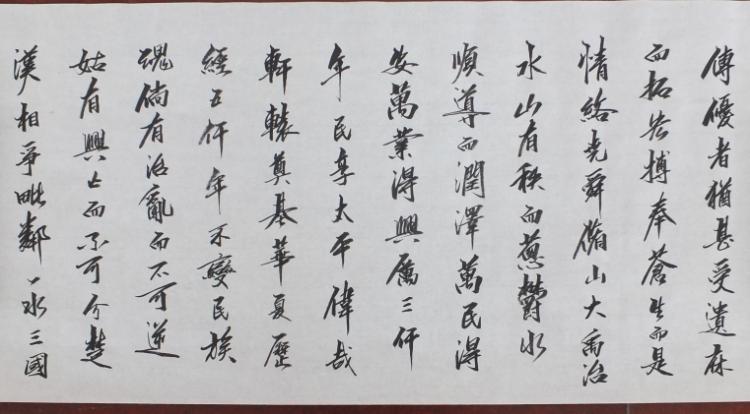 傳優者猶甚受遺麻
而拓宏搏奉蒼生而是
情絡堯舜脩山大禹治
水山有秩而蔥欝水
順導而潤澤萬民得
安萬業得興厲三仟
年民享太平偉哉
軒轅奠基華夏歷
經五仟年不變民族
魂倘有治亂而不可逆
姑有興亡而不可分楚
漢相爭毗鄰一水三國